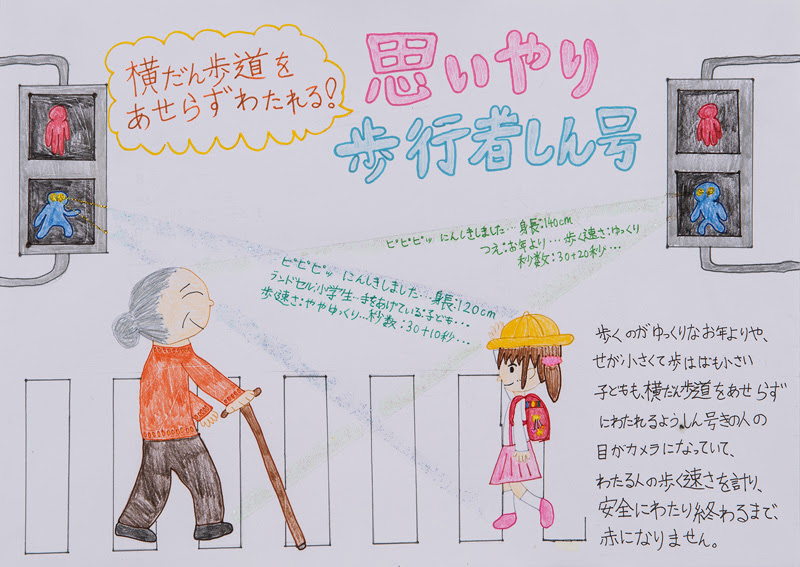 横だん歩道を
あせらずわたれる!
思いやり
歩行者しん号
ピピピッ にんしきしました…身長:140cm
つえ:お年より…歩く速さ:ゆっくり
秒数:30+20秒…
ピピピッ にんしきしました…身長:120cm
ランドセル:小学生…手をあげている:子ども…
歩く速さ:ややゆっくり…秒数:30+10秒…
歩くのがゆっくりなお年よりや、
せが小さくて歩はばも小さい
子どもも、横だん歩道をあせらず
にわたれるよう、しん号きの人の
目がカメラになっていて、
わたる人の歩く速さを計り、
安全にわたり終わるまで、
赤になりません。